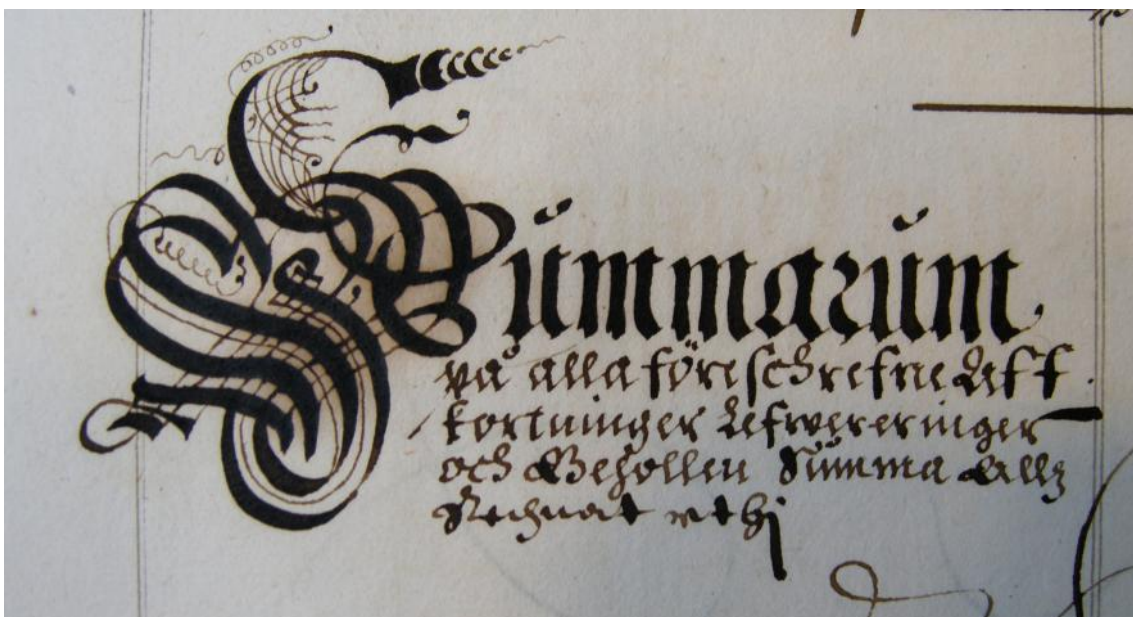 Summarum
på alla föreschrefne Aff
kortninger Lefwereringer
och Behollen Summa Allz
Rechnat uthj